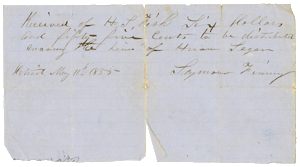 Received of H. S. Fish Six Dollars
and fifty five Cents to be distributed
among the heirs of Hiram Logan
May 11th 1855 Seymour Finney